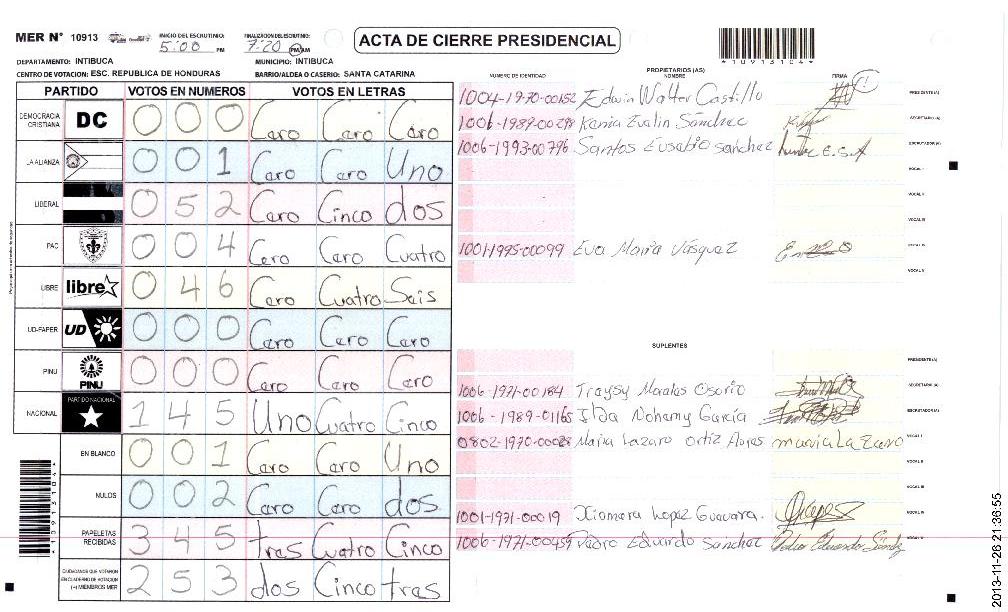 MER N° 10913 INICIO DEL ESCRUTINIO: 5:00 PM FINALIZACION DEL ESCRUTINIO: 7:20 PM AM
ACTA DE CIERRE PRESIDENCIAL
*10913104*
DEPARTAMENTO: INTIBUCA MUNICIPIO: INTIBUCA
CENTRO DE VOTACION: ESC. REPUBLICA DE HONDURAS BARRIO/ALDEA O CASERIO: SANTA CATARINA
PARTIDO VOTOS EN NUMEROS VOTOS EN LETRAS
DEMOCRACIA CRISTIANA DC 0 0 0 Caro Caro Caro
LA ALIANZA 0 0 1 Caro Caro Uno
LIBERAL 0 5 2 Caro Cinco dos
PAC 0 0 4 Cero Cero Cuatro
LIBRE libre 0 4 6 Cero Cuatro Seis
UD-FAPER UD 0 0 0 Caro Caro Caro
PINU PINU 0 0 0 Caro Caro Caro
NACIONAL PARTIDO NACIONAL 1 4 5 Uno Cuatro Cinco
EN BLANCO 0 0 1 Caro Caro Uno
NULOS 0 0 2 Caro Caro dos
PAPELETAS RECIBIDAS 3 4 5 tras Cuatro Cinco
CIUDADANOS QUE VOTARON EN CUADERNO DE VOTACION (+) MIEMBROS MER 2 5 3 dos Cinco tras
*10913104*
PROPIETARIOS (AS)
NUMERO DE IDENTIDAD NOMBRE FIRMA
1004-1970-00152 Edwin Walter Castillo PRESIDENTE(A)
1006-1989-00298 Kenia Evalin Sánchez SECRETARIO(A)
1006-1993-00796 Santos Eusebio Sanchez E.S.A ESCRUTADOR(A)
VOCAL I
VOCAL II
VOCAL III
1001-1995-00099 Eva Maria Vásquez VOCAL IV
VOCAL V
SUPLENTES
PRESIDENTE(A)
1006-1971-00184 Traysy Morales Osorio SECRETARIO(A)
1006-1989-01165 Ilda Nohamy García ESCRUTADOR(A)
0802-1970-00028 Maria Lazaro Ortiz Flores maria Lazaro VOCAL I
VOCAL II
VOCAL III
1001-1971-00019 Xiomara Lopez Guevara. VOCAL IV
1006-1971-00459 Pedro Eduardo Sanchez Pedro Eduardo Sánchz VOCAL V
2013-11-26 21:36:55